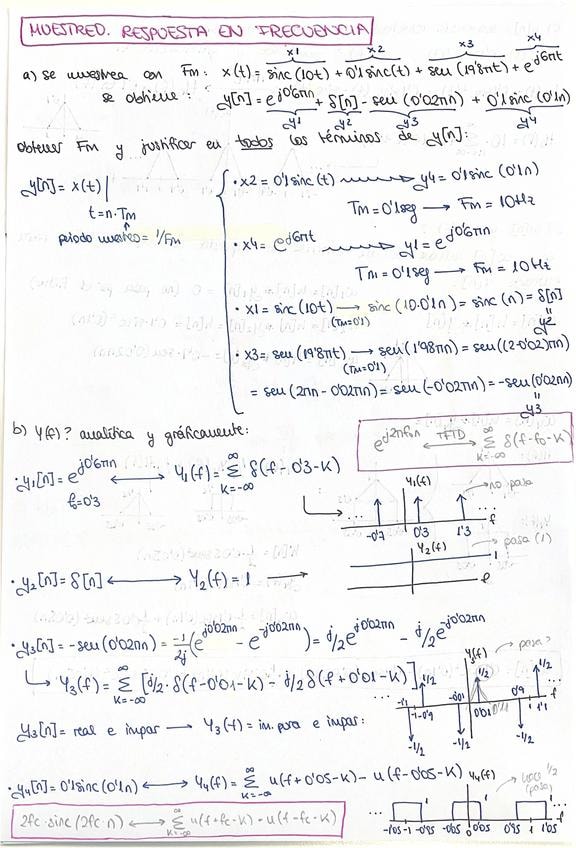 MUESTREO. RESPUESTA EN FRECUENCIA
x1 x2 x3 x4
a) se muestrea con Fm: x(t) = sinc(10t) + 0'1 sinc(t) + sen(19'8πt) + e^{j6πt}
se obtiene: y[n] = e^{j0'6πn} + δ[n] - sen(0'02πn) + 0'1 sinc(0'1n)
y1 y2 y3 y4
obtener Fm y justificar en todos los términos de y[n]:
y[n] = x(t)|
t=n·Tm
periodo muestreo = 1/Fm
· x2 = 0'1 sinc(t) → y4 = 0'1 sinc(0'1n)
Tm = 0'1 seg → Fm = 10Hz
· x4 = e^{j6πt} → y1 = e^{j0'6πn}
Tm = 0'1 seg → Fm = 10Hz
· x1 = sinc(10t) → sinc(10·0'1n) = sinc(n) = δ[n]
(Tm=0'1)
"
y2
· x3 = sen(19'8πt) → sen(1'98πn) = sen((2-0'02)πn)
(Tm=0'1)
= sen(2πn - 0'02πn) = sen(-0'02πn) = -sen(0'02πn)
"
y3
b) Y(f)? analítica y gráficamente:
e^{j2πfon} ←TFTD→ ∞∑K=-∞ δ(f-fo-K)
· y1[n] = e^{j0'6πn} ←→ Y1(f) = ∞∑K=-∞ δ(f-0'3-K)
fo=0'3
Y1(f)
no pasa
... -0'7 0'3 1'3 ... f
· y2[n] = δ[n] ←→ Y2(f) = 1 →
Y2(f)
pasa (1)
1
f
· y3[n] = -sen(0'02πn) = -1/2j (e^{j0'02πn} - e^{-j0'02πn}) = j/2 e^{j0'02πn} - j/2 e^{-j0'02πn}
↳ Y3(f) = ∞∑K=-∞ [j/2·δ(f-0'01-K) - j/2 δ(f+0'01-K)]
Y3(f)
pasa
1/2 1/2 1/2
-1 -0'9 -0'01 0'01 0'9 1 1'1 f
-1/2 -1/2 -1/2
y3[n] = real e impar → Y3(f) = im. pura e impar:
· y4[n] = 0'1 sinc(0'1n) ←→ Y4(f) = ∞∑K=-∞ u(f+0'05-K) - u(f-0'05-K)
Y4(f)
1/2
(pasa)
1 1 1
-1'05 -1 -0'95 -0'05 0 0'05 0'95 1 1'05 f
2fc·sinc(2fc·n) ←→ ∞∑K=-∞ u(f+fc-K) - u(f-fc-K)